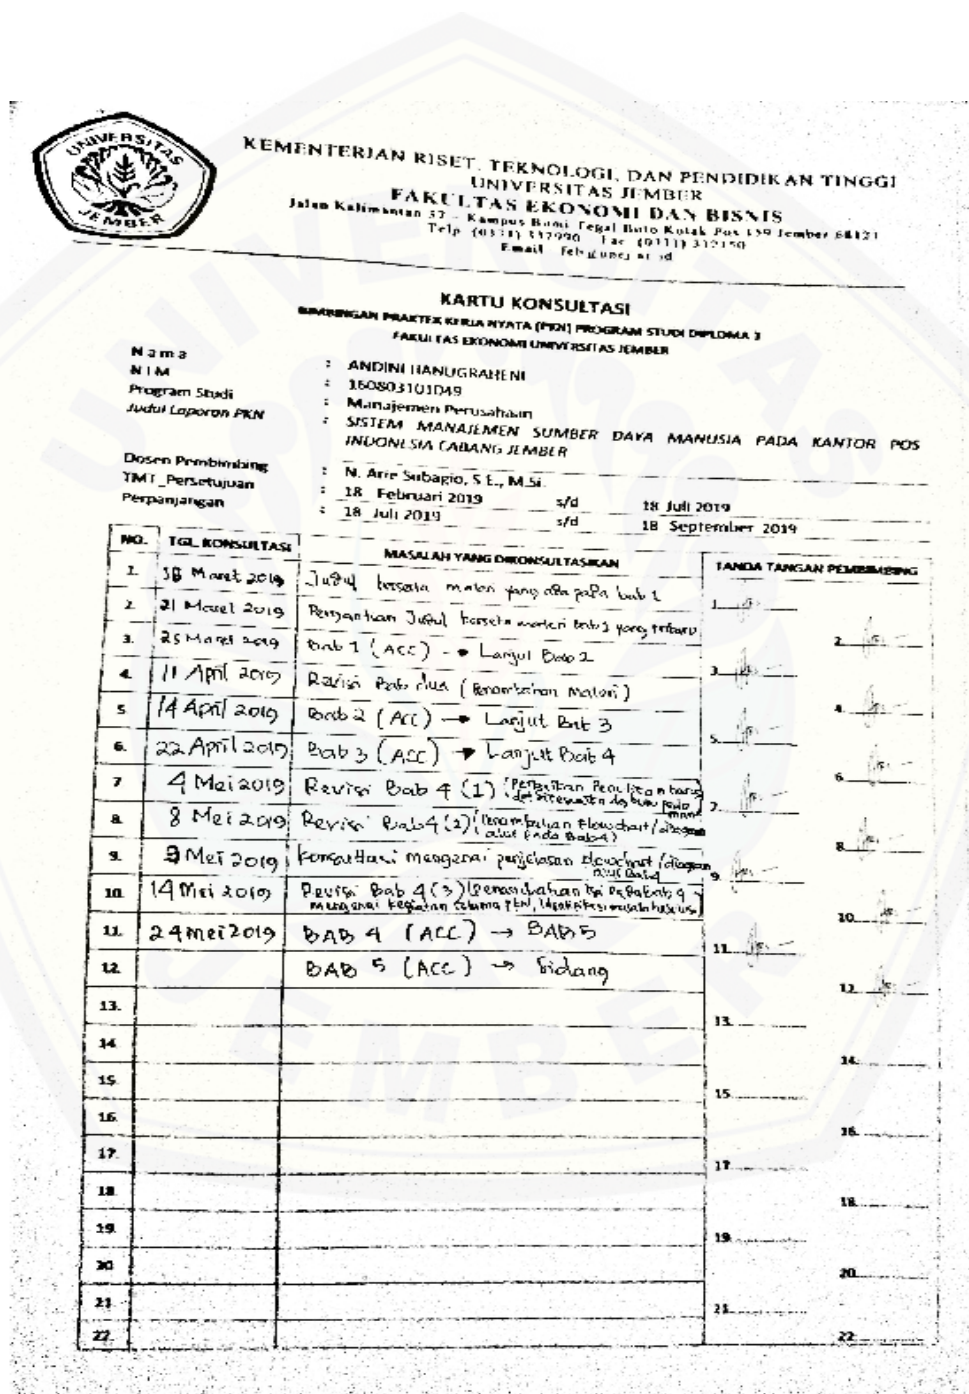 UNIVERSITAS JEMBER
KEMENTERIAN RISET, TEKNOLOGI, DAN PENDIDIKAN TINGGI
UNIVERSITAS JEMBER
FAKULTAS EKONOMI DAN BISNIS
Jalan Kalimantan 37 – Kampus Bumi Tegal Boto Kotak Pos 159 Jember 68121
Telp. (0331) 337990 Fac. (0331)
Email
KARTU KONSULTASI
BIMBINGAN PRAKTEK KERJA NYATA (PKN) PROGRAM STUDI DIPLOMA 3
FAKULTAS EKONOMI UNIVERSITAS JEMBER
Nama : ANDINI HANUGRAHENI
NIM : 160803101049
Program Studi : Manajemen Perusahaan
Judul Laporan PKN : SISTEM MANAJEMEN SUMBER DAYA MANUSIA PADA KANTOR POS
INDONESIA CABANG JEMBER
Dosen Pembimbing : N. Arie Subagio, S.E., M.Si.
TMT_Persetujuan : 18 Februari 2019 s/d 18 Juli 2019
Perpanjangan : 18 Juli 2019 s/d 18 September 2019
NO. TGL. KONSULTASI MASALAH YANG DIKONSULTASIKAN TANDA TANGAN PEMBIMBING
1. Maret 2019 Judul beserta materi yang ada pada bab 1 1.
2. 21 Maret 2019 Pergantian Judul beserta materi Bab 1 yang terbaru 2.
3. 25 Maret 2019 Bab 1 (ACC) → Lanjut Bab 2 3.
4. 11 April 2019 Revisi Bab dua (Penambahan Materi) 4.
5 14 April 2019 Bab 2 (ACC) → Lanjut Bab 3 5.
6. 22 April 2019 Bab 3 (ACC) → Lanjut Bab 4 6.
7 4 Mei 2019 Revisi Bab 4 (1) 7.
8. 8 Mei 2019 Revisi Bab 4 (2) (Penambahan Flowchart/diagram alur pada Bab 4) 8.
9. 9 Mei 2019 Konsultasi mengenai penjelasan flowchart/diagram alur Bab 4 9.
10. 14 Mei 2019 Revisi Bab 4 (3) (Penambahan isi pada bab 4
mengenai kegiatan selama PKN, Identifikasi masalah khusus) 10.
11. 24 mei 2019 BAB 4 (ACC) → BAB 5 11.
12. BAB 5 (ACC) → Sidang 12.
13. 13.
14. 14.
15. 15.
16. 16.
17. 17.
18. 18.
19. 19.
20 20.
21 21.
22. 22